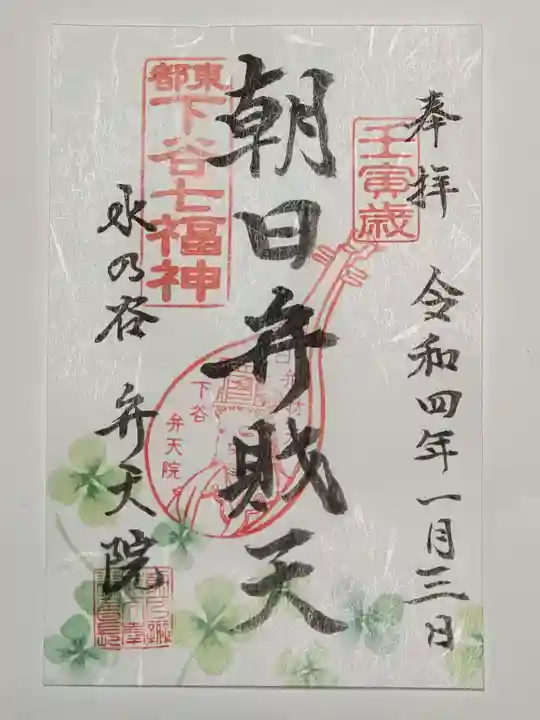 奉拝 令和四年一月三日
壬寅歳
朝日弁財天
東都
下谷七福神
下谷
弁天院
水の谷 弁天院